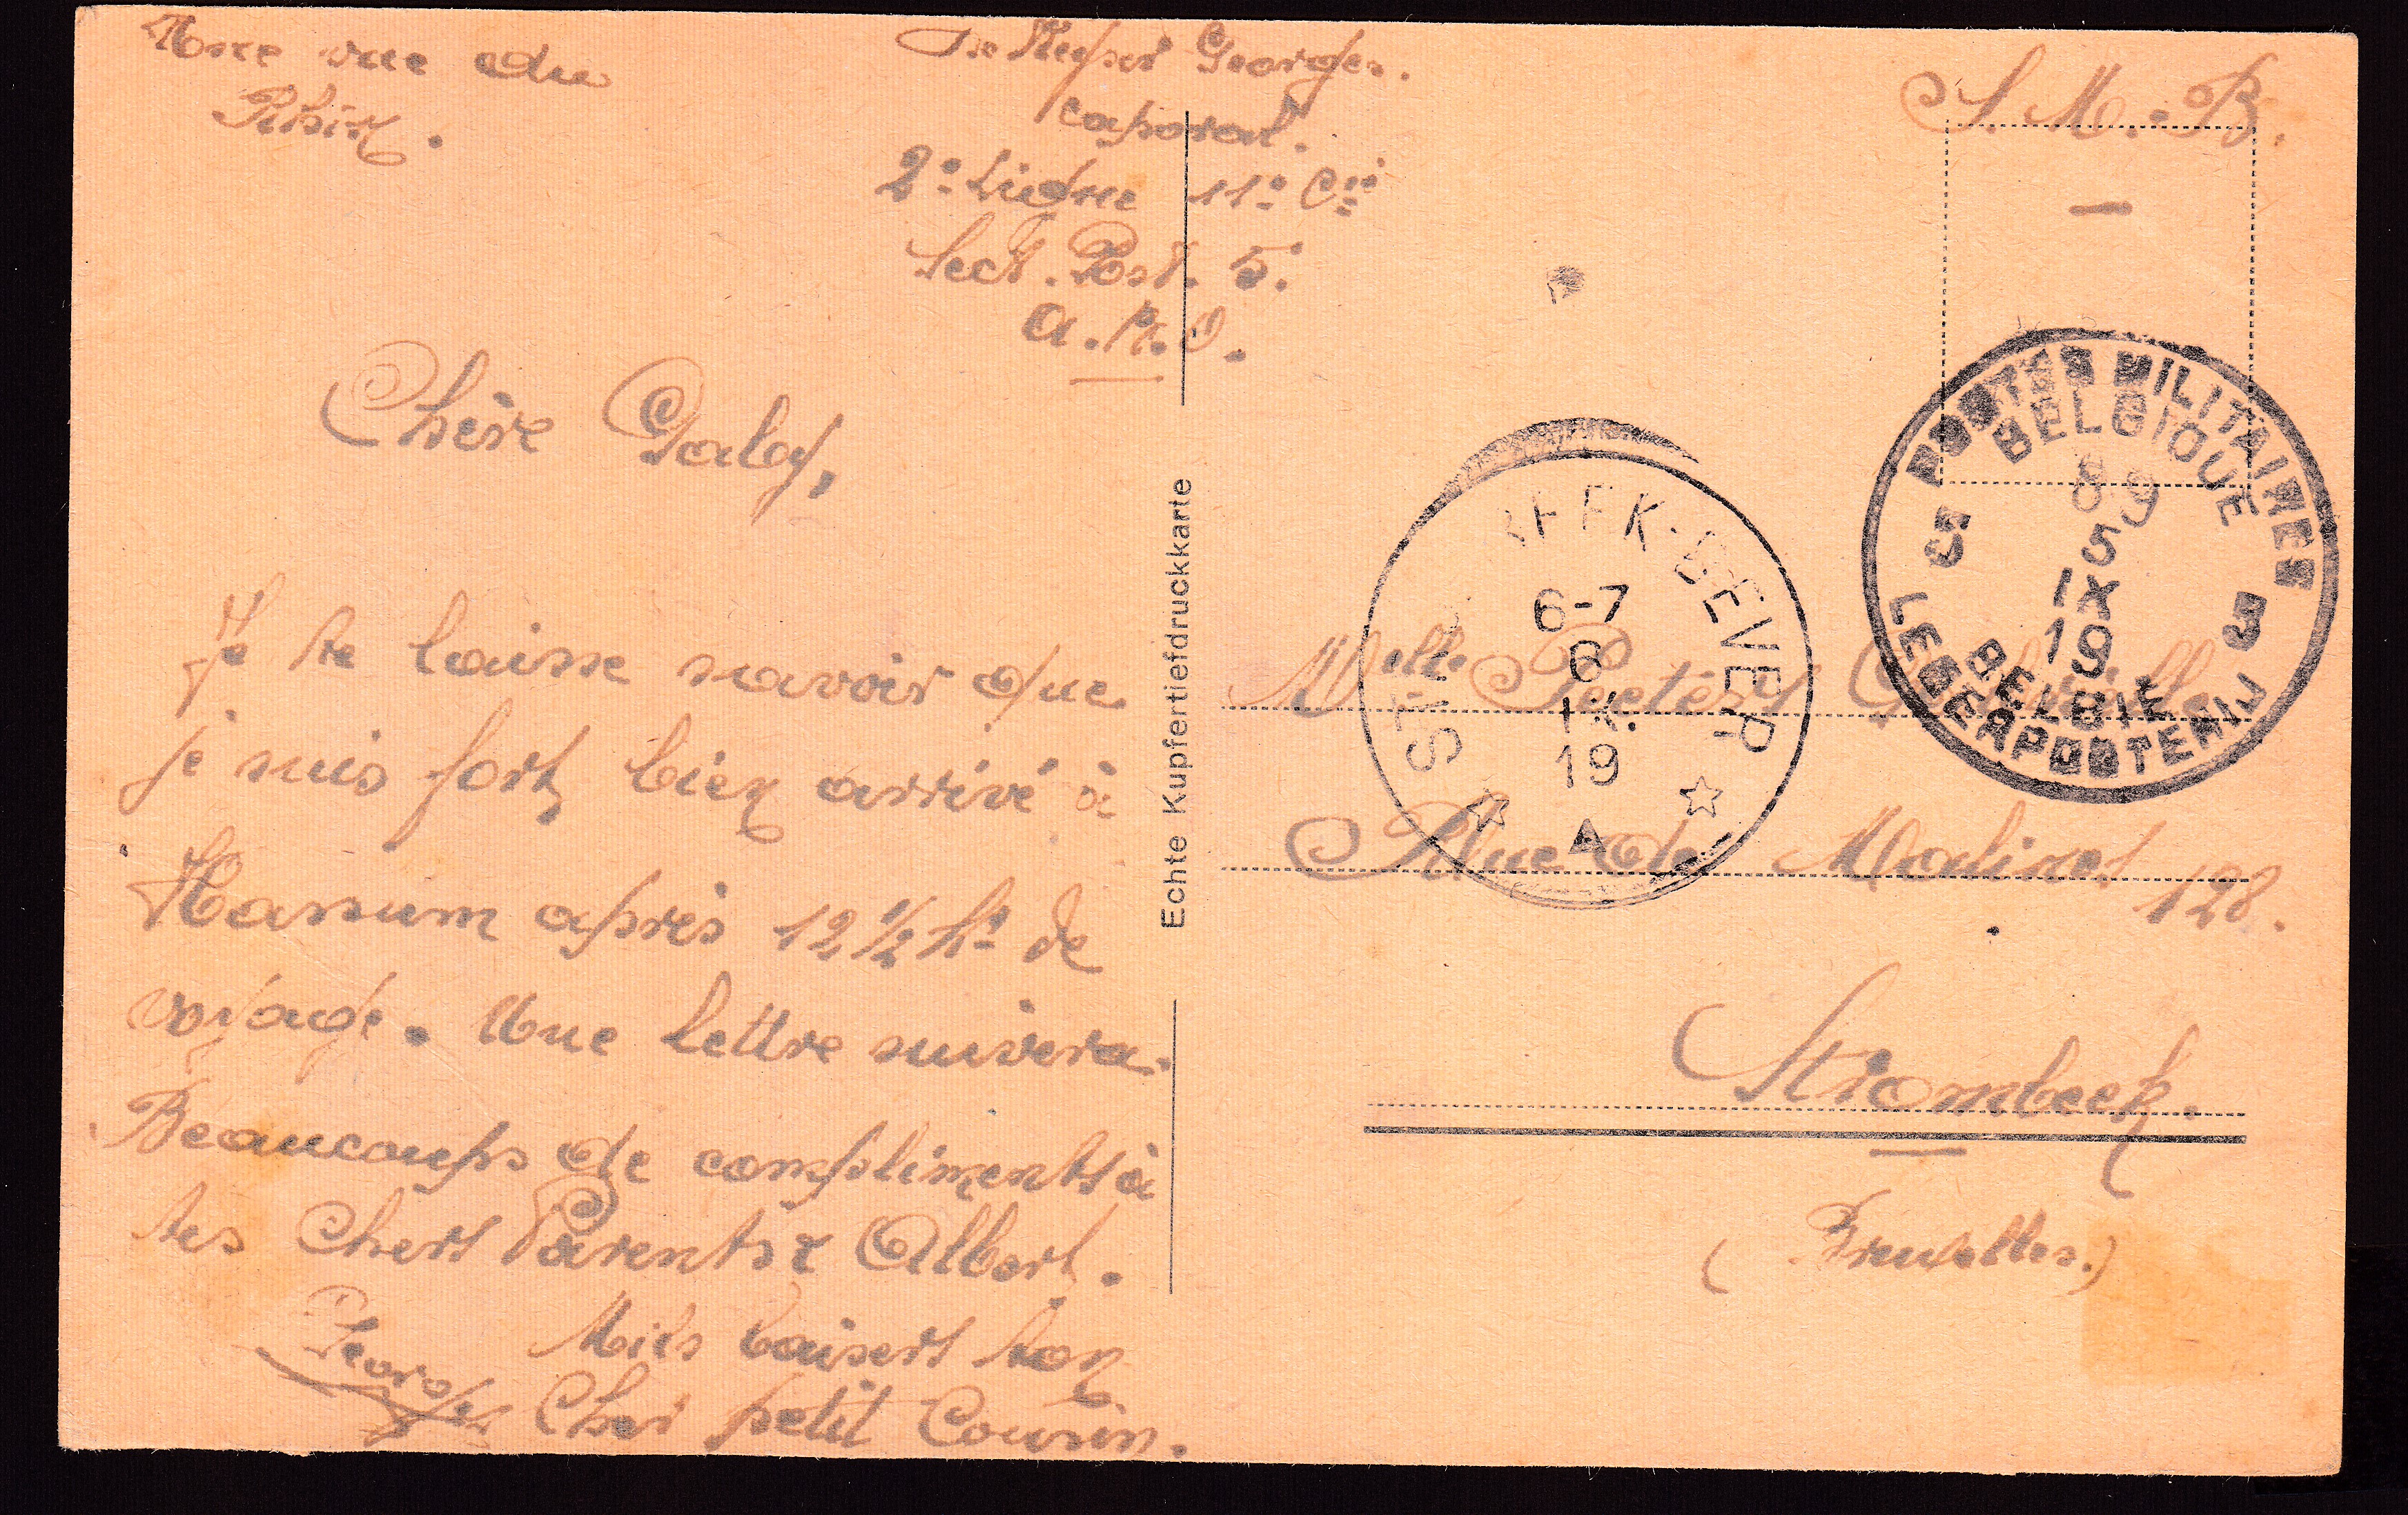 Une vue du
Rhin.
De Keyser Georges.
caporal.
2e Ligne 11e Cie
Sect. Post. 5.
A.R.O.
S. M. - B.
Chère Gaby,
Je te laisse savoir que
je suis fort bien arrivé à
Hassum après 12 1/2 hs de
voyage. Une lettre suivera.
Beaucoups de compliments à
tes Chers Parents & Albert.
Mils baisers ton
Cher petit Cousin.
Georges
Echte Kupfertiefdruckkarte
POSTES MILITAIRES
BELGIQUE
8 9
5
IX
19
5 5
BELGIE
LEGERPOSTERIJ
EEK-BEVER
6-7
6
IX
19
A
Melle Peeters Gabrielle
Rue de Malines 128.
Strombeek.
(Bruxelles.)